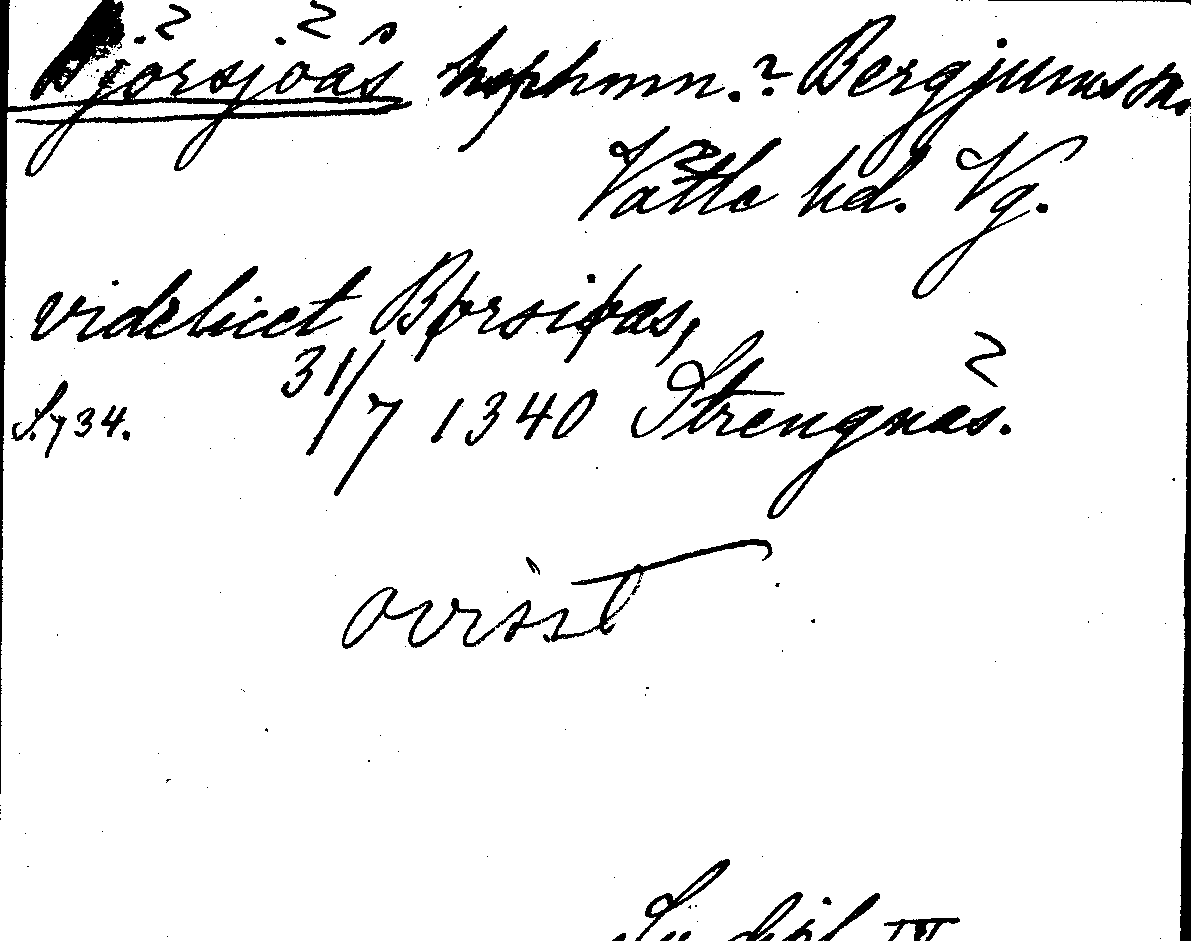 Björsjöås hsphmn.? Bergjums sn.
Vättle hd. Vg.
videlicet Børsiøas,
S. 734. 31/7 1340 Strengnäs.
ovisst
Sv. dipl. IV